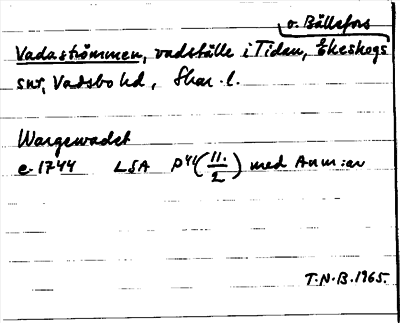 o. Bällefors
Vadaströmmen, vadställe i Tidan, Ekeskogs
snr, Vadsbo hd, Skar. l.
Wargewadet
c. 1744 LSA P41 (11:/2) med Anm:er
T.N.B. 1965.